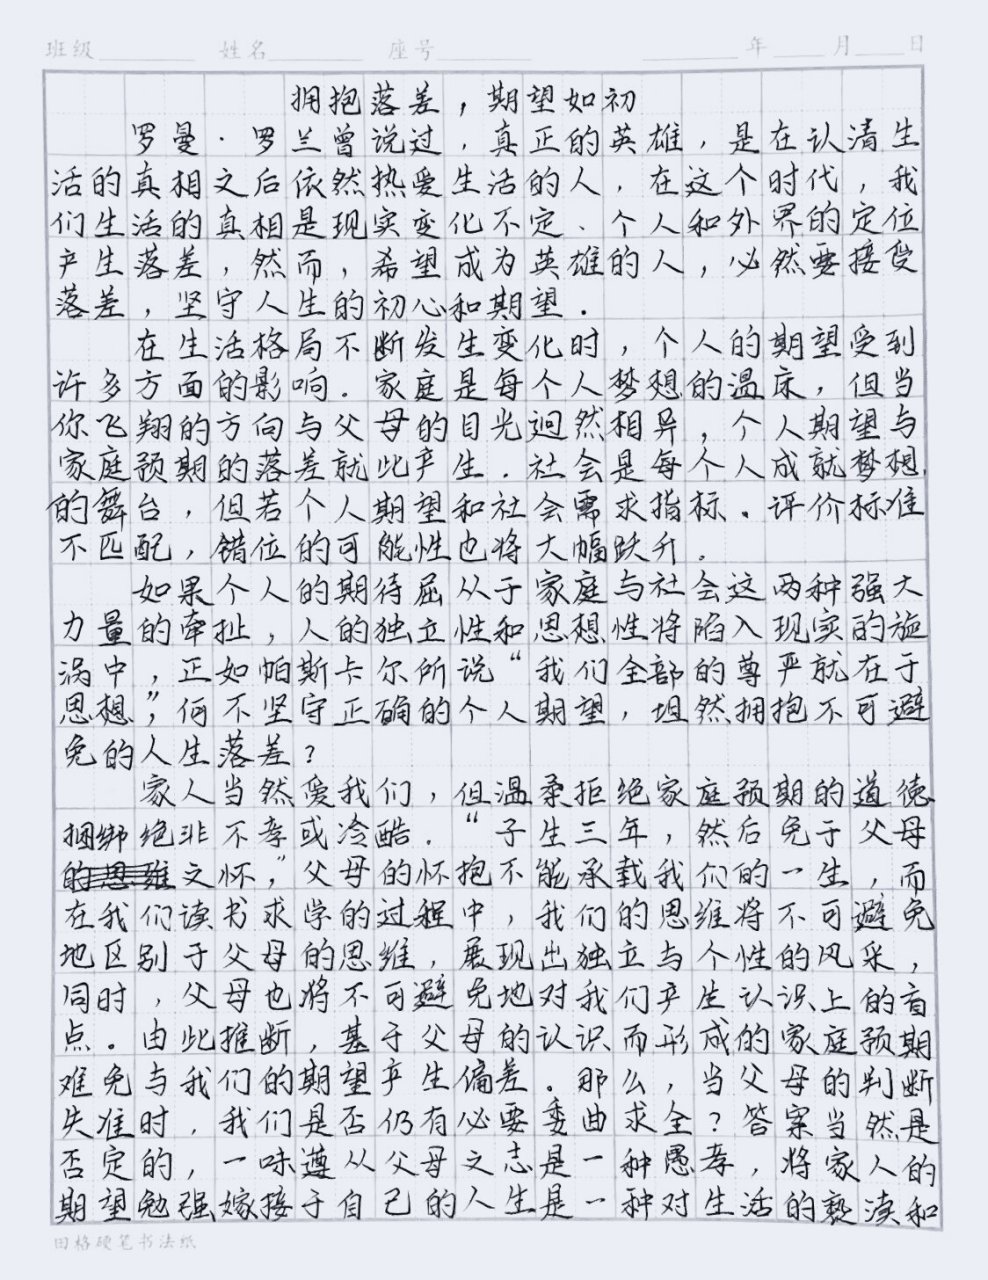 班级 姓名 座号 年 月 日
拥抱落差，期望如初
罗曼·罗兰曾说过，真正的英雄，是在认清生
活的真相之后依然热爱生活的人，在这个时代，我
们生活的真相是现实变化不定、个人和外界的定位
产生落差，然而，希望成为英雄的人，必然要接受
落差，坚守人生的初心和期望．
在生活格局不断发生变化时，个人的期望受到
许多方面的影响．家庭是每个人梦想的温床，但当
你飞翔的方向与父母的目光迥然相异，个人期望与
家庭预期的落差就此产生．社会是每个人成就梦想
的舞台，但若个人期望和社会需求指标、评价标准
不匹配，错位的可能性也将大幅跃升．
如果个人的期待屈从于家庭与社会这两种强大
力量的牵扯，人的独立性和思想性将陷入现实的旋
涡中，正如帕斯卡尔所说“我们全部的尊严就在于
思想”，何不坚守正确的个人期望，坦然拥抱不可避
免的人生落差？
家人当然爱我们，但温柔拒绝家庭预期的道德
捆绑绝非不孝或冷酷．“子生三年，然后免于父母
之怀，”父母的怀抱不能承载我们的一生，而
在我们读书求学的过程中，我们的思维将不可避免
地区别于父母的思维，展现出独立与个性的风采，
同时，父母也将不可避免地对我们产生认识上的盲
点．由此推断，基于父母的认识而形成的家庭预期
难免与我们的期望产生偏差．那么，当父母的判断
失准时，我们是否仍有必要委曲求全？答案当然是
否定的，一味遵从父母之志是一种愚孝，将家人的
期望勉强嫁接于自己的人生是一种对生活的亵渎和
田格硬笔书法纸